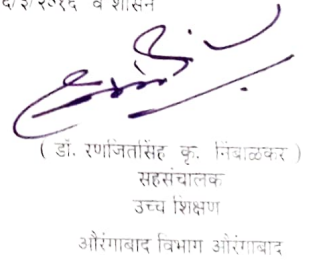 ६/३/२०१६ व शासन
( डॉ. रणजितसिंह कृ. निंबाळकर )
सहसंचालक
उच्च शिक्षण
औरंगाबाद विभाग औरंगाबाद